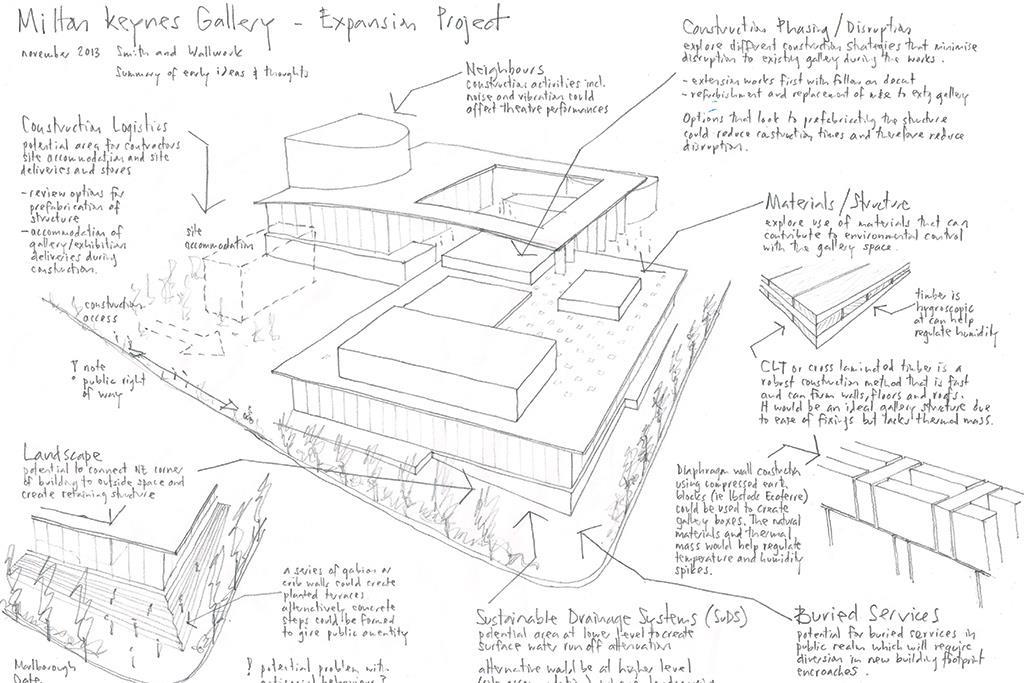 Milton Keynes Gallery - Expansion Project
november 2013 Smith and Wallwork
Summary of early ideas & thoughts
Neighbours
construction activities incl.
noise and vibration could
affect theatre performances
Construction Phasing / Disruption
explore different construction strategies that minimise
disruption to existing gallery during the works.
- extension works first with follow on decant
- refurbishment and replacement of m&e to extg gallery
Options that look to prefabricating the structure
could reduce construction times and therefore reduce
disruption.
Construction Logistics
potential area for contractors
site accommodation and site
deliveries and stores
- review options for
prefabrication of
structure
- accommodation of
gallery/exhibition
deliveries during
construction.
site
accommodation
construction
access
! note
public right
of way
Materials / Structure
explore use of materials that can
contribute to environmental control
with the gallery space.
timber is
hygroscopic
at can help
regulate humidity
CLT or cross laminated timber is a
robust construction method that is fast
and can form walls, floors and roofs.
It would be an ideal gallery structure due
to ease of fixings but lacks thermal mass.
Diaphragm wall construction
using compressed earth
blocks (ie Ibstocks Ecoterre)
could be used to create
gallery boxes. The natural
materials and thermal
mass would help regulate
temperature and humidity
spikes.
Landscape
potential to connect NE corner
of building to outside space and
create retaining structure
a series of gabion or
crib walls could create
planted terraces
alternatively concrete
steps could be formed
to give public amenity
! potential problem with
antisocial behaviour ?
Marlborough
Gate
Sustainable Drainage Systems (SuDS)
potential area at lower level to create
surface water run off attenuation
alternative would be at higher level
Buried Services
potential for buried services in
public realm which will require
diversion in new building footprint
encroaches.